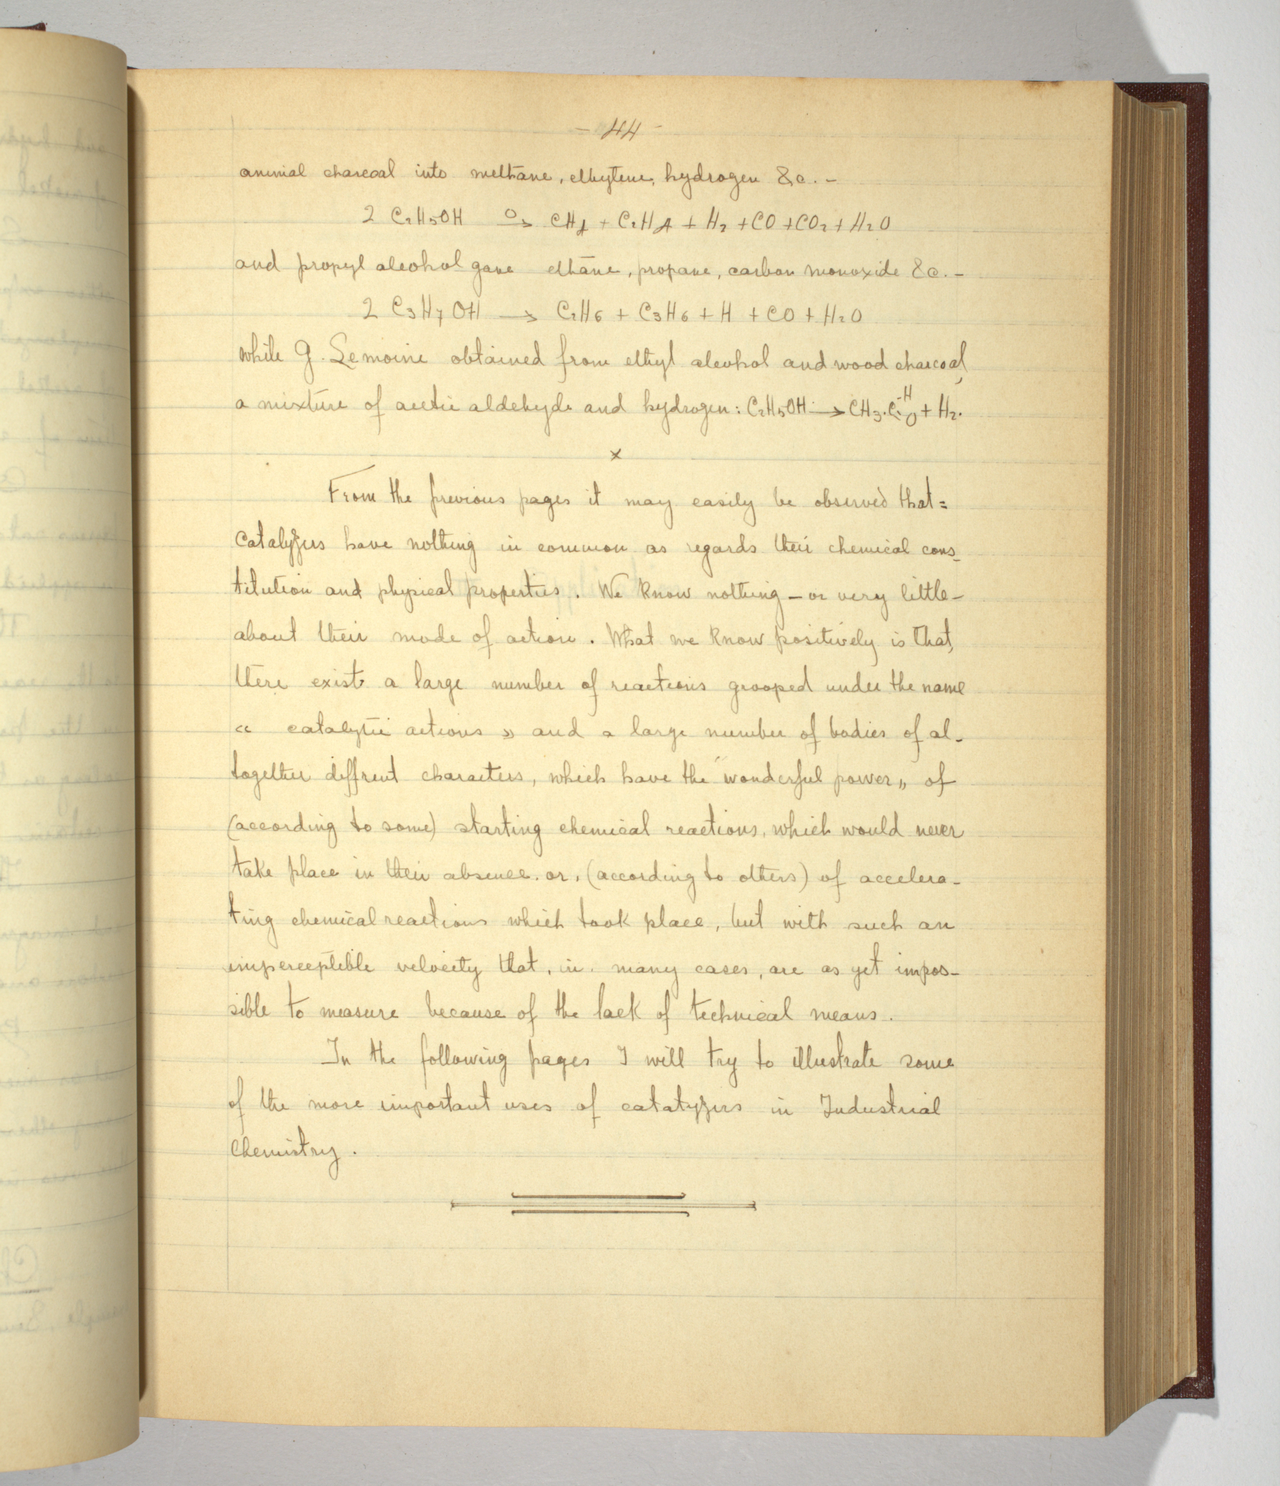 - 44 -
animal charcoal into methane, ethylene, hydrogen &c. -
2 C₂H₅OH O→ CH₄ + C₂H₄ + H₂ + CO + CO₂ + H₂O
and propyl alcohol gave ethane, propane, carbon monoxide &c. -
2 C₃H₇OH → C₂H₆ + C₃H₆ + H + CO + H₂O
while G. Lemoine obtained from ethyl alcohol and wood charcoal,
a mixture of acetic aldehyde and hydrogen: C₂H₅OH → CH₃.C-H O + H₂.
x
From the previous pages it may easily be observed that =
Catalyzers have nothing in common as regards their chemical cons-
titution and physical properties. We know nothing - or very little -
about their mode of action. What we know positively is that,
there exists a large number of reactions grooped under the name
« catalytic actions » and a large number of bodies of al-
together diffrent characters, which have the "wonderful power" of
(according to some) starting chemical reactions, which would never
take place in their absence. or, (according to others) of accelera-
ting chemical reactions which took place, but with such an
imperceptible velocity that, in many cases, are as yet impos-
sible to measure because of the lack of technical means.
In the following pages I will try to illustrate some
of the more important uses of catatyzers in Industrial
Chemistry.